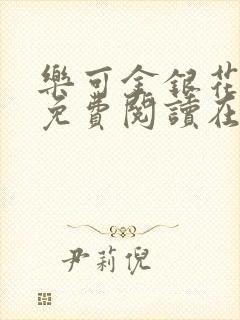 樂可金銀花
免費閱讀在
尹莉倪